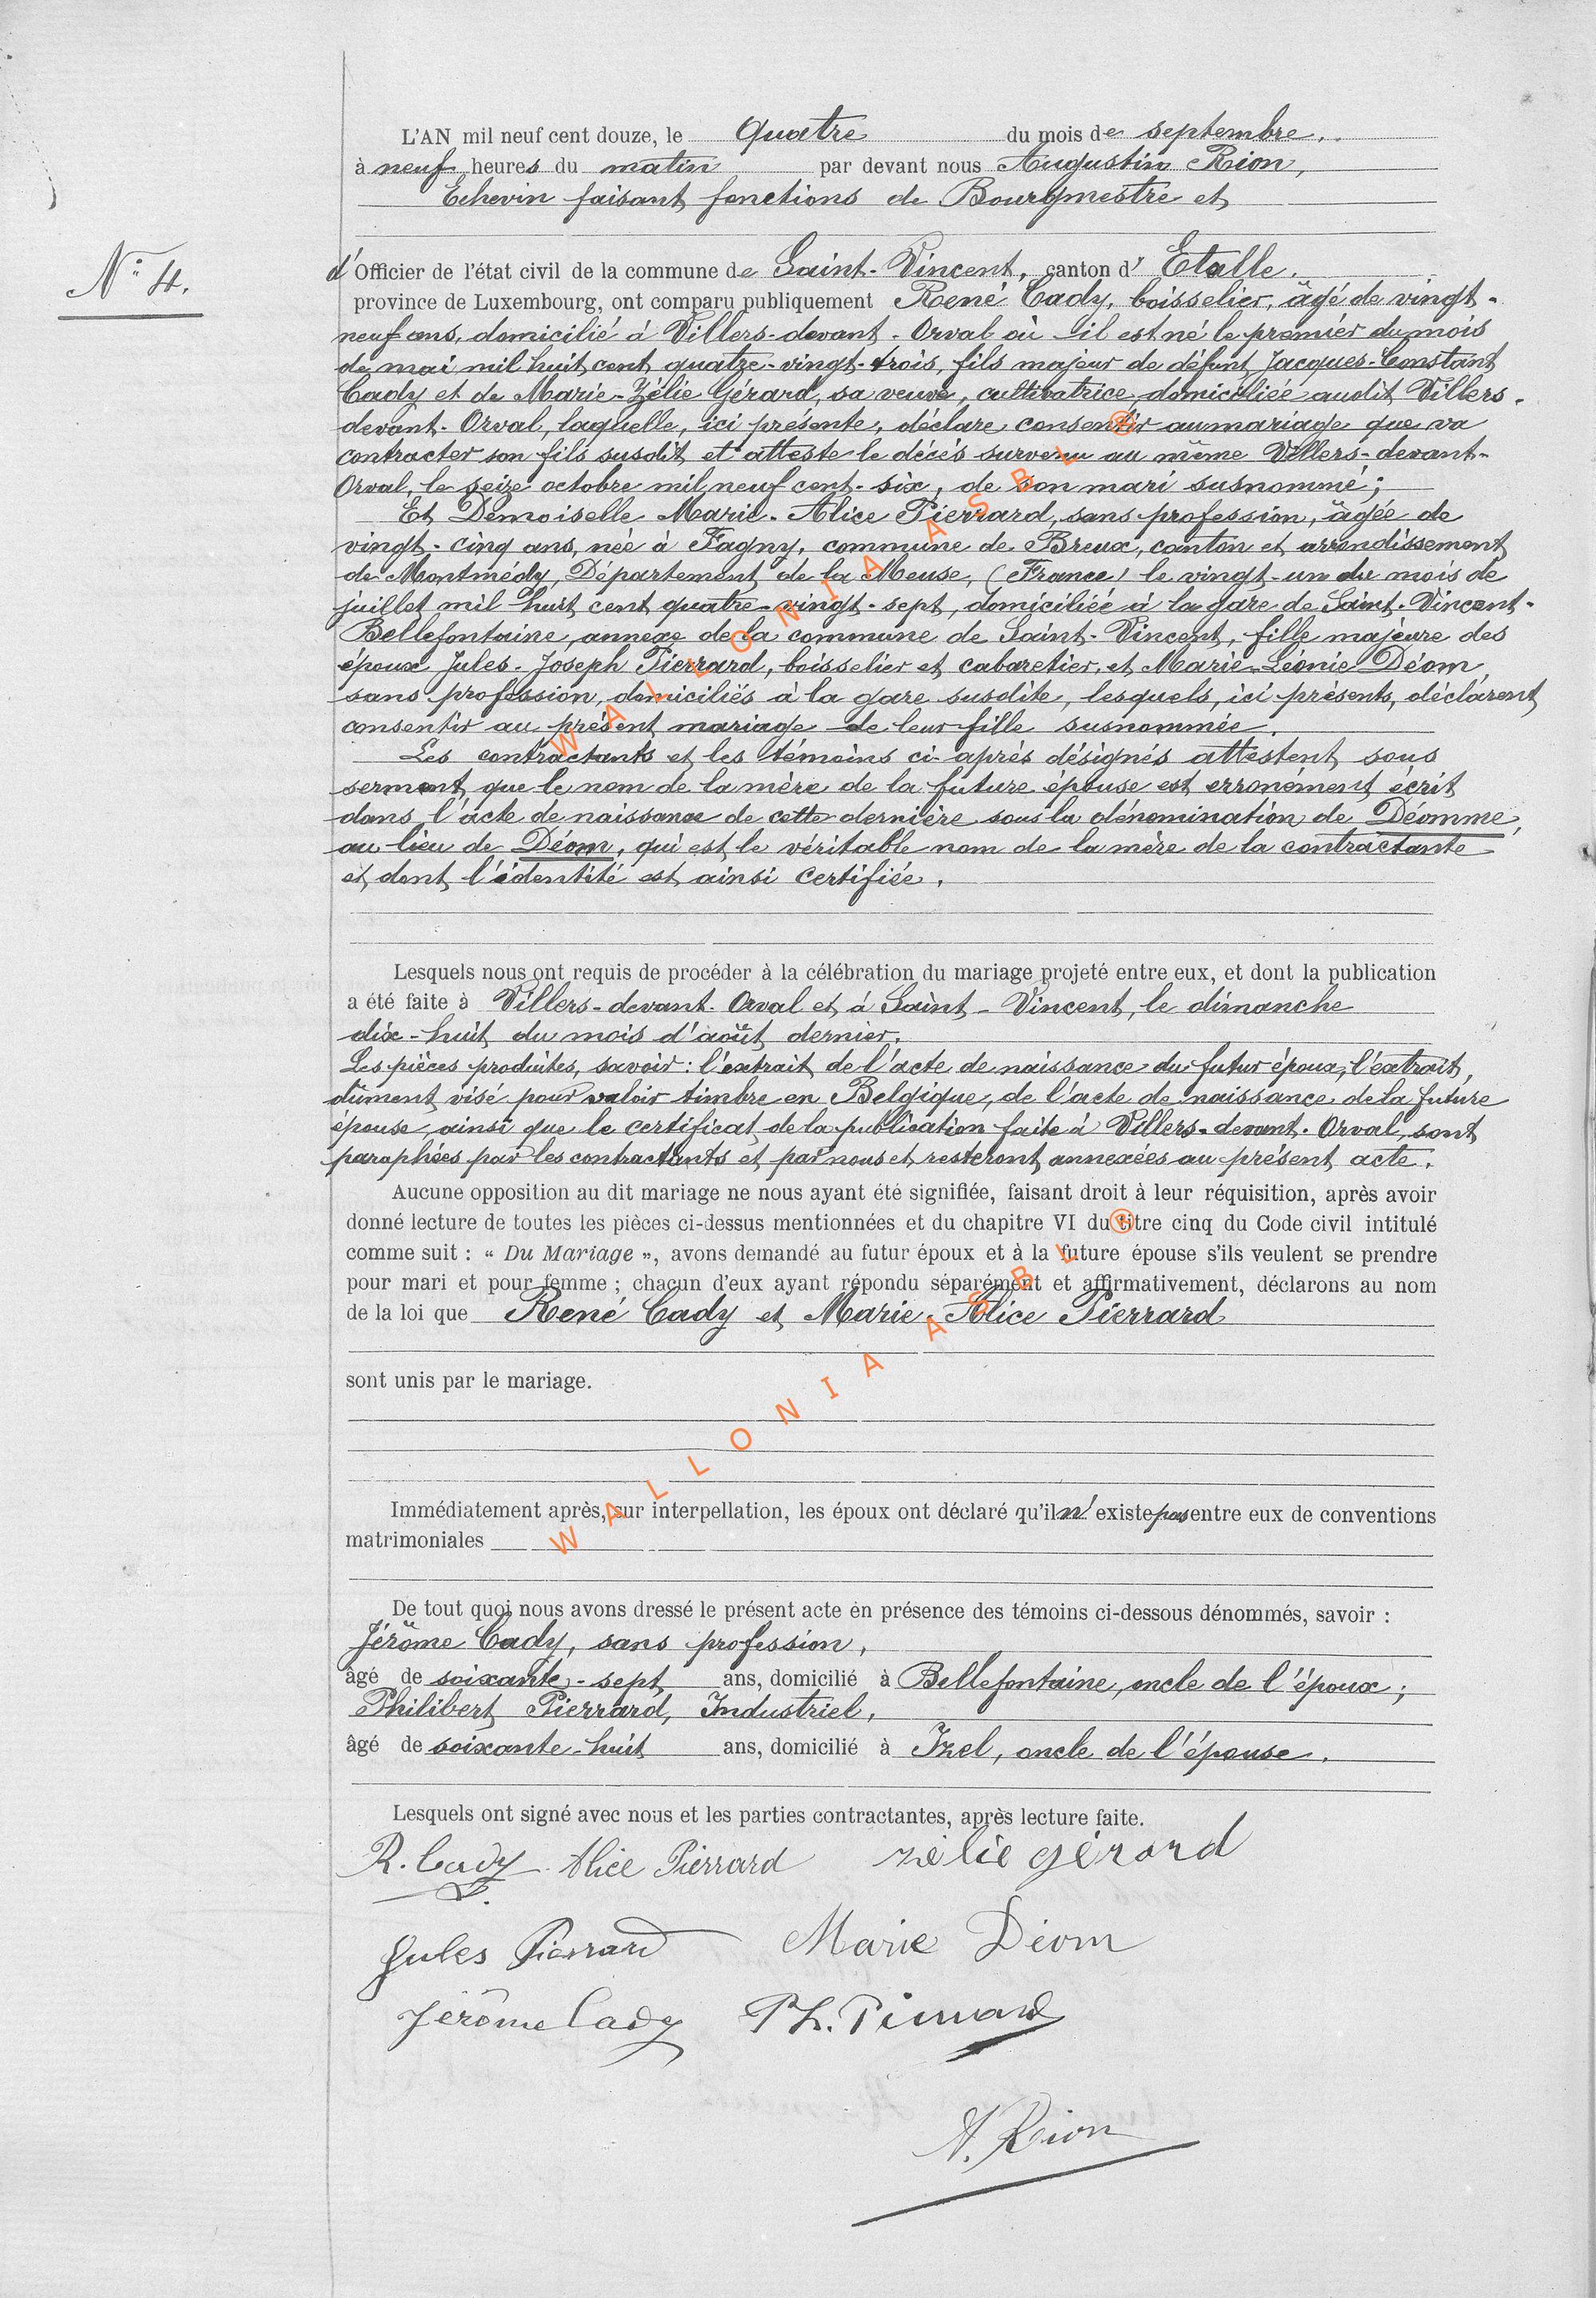 L'AN mil neuf cent douze, le quatre du mois de septembre.
à neuf heures du matin par devant nous Augustin Rion,
Echevin faisant fonctions de Bourgmestre et
N° 4.
d'Officier de l'état civil de la commune de Saint-Vincent, canton d' Etalle.
province de Luxembourg, ont comparu publiquement René Cady, boisselier, âgé de vingt-
neuf ans, domicilié à Villers-devant-Orval où il est né le premier du mois
de mai mil huit cent quatre-vingt-trois, fils majeur de défunt Jacques-Constant
Cady et de Marie-Zélie Gérard, sa veuve, cultivatrice, domiciliée audit Villers-
devant-Orval, laquelle, ici présente, déclare consentir au mariage que va
contracter son fils susdit et atteste le décès survenu au même Villers-devant-
Orval, le seize octobre mil neuf cent-six, de son mari susnommé;
Et Demoiselle Marie-Alice Pierrard, sans profession, âgée de
vingt-cinq ans, née à Fagny, commune de Breux, canton et arrondissement
de Montmédy, Département de la Meuse, (France) le vingt-un du mois de
juillet mil huit cent quatre-vingt-sept, domiciliée à la gare de Saint-Vincent-
Bellefontaine, annexe de la commune de Saint-Vincent, fille majeure des
époux Jules-Joseph Pierrard, boisselier et cabaretier, et Marie-Léonie Déom
sans profession, domiciliés à la gare susdite, lesquels, ici présents, déclarent
consentir au présent mariage de leur fille susnommée.
Les contractants et les témoins ci-après désignés attestent sous
serment que le nom de la mère de la future épouse est erronément écrit
dans l'acte de naissance de cette dernière sous la dénomination de Déomme,
au lieu de Déom, qui est le véritable nom de la mère de la contractante
et dont l'identité est ainsi certifiée.
Lesquels nous ont requis de procéder à la célébration du mariage projeté entre eux, et dont la publication
a été faite à Villers-devant-Orval et à Saint-Vincent, le dimanche
dix-huit du mois d'août dernier.
Les pièces produites, savoir: l'extrait de l'acte de naissance du futur époux, l'extrait,
dûment visé pour valoir timbre en Belgique, de l'acte de naissance de la future
épouse ainsi que le certificat de la publication faite à Villers-devant-Orval, sont
paraphées par les contractants et par nous et resteront annexées au présent acte.
Aucune opposition au dit mariage ne nous ayant été signifiée, faisant droit à leur réquisition, après avoir
donné lecture de toutes les pièces ci-dessus mentionnées et du chapitre VI du titre cinq du Code civil intitulé
comme suit : « Du Mariage », avons demandé au futur époux et à la future épouse s'ils veulent se prendre
pour mari et pour femme ; chacun d'eux ayant répondu séparément et affirmativement, déclarons au nom
de la loi que René Cady et Marie-Alice Pierrard
sont unis par le mariage.
Immédiatement après, sur interpellation, les époux ont déclaré qu'il n'existe pas entre eux de conventions
matrimoniales
De tout quoi nous avons dressé le présent acte en présence des témoins ci-dessous dénommés, savoir :
Jérôme Cady, sans profession,
âgé de soixante-sept ans, domicilié à Bellefontaine, oncle de l'époux;
Philibert Pierrard, Industriel,
âgé de soixante-huit ans, domicilié à Izel, oncle de l'épouse.
Lesquels ont signé avec nous et les parties contractantes, après lecture faite.
R. Cady Alice Pierrard zélie gérard
Jules Pierrard Marie Déom
Jérôme Cady Ph. Pierrard
A. Rion
WALLONIA ASBL ®
WALLONIA ASBL ®